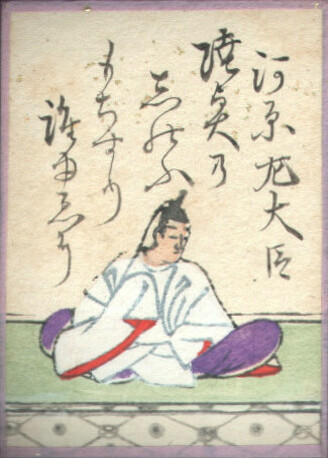 河原左大臣
陸奥乃
志のふ
もちすり
誰ゆゑに